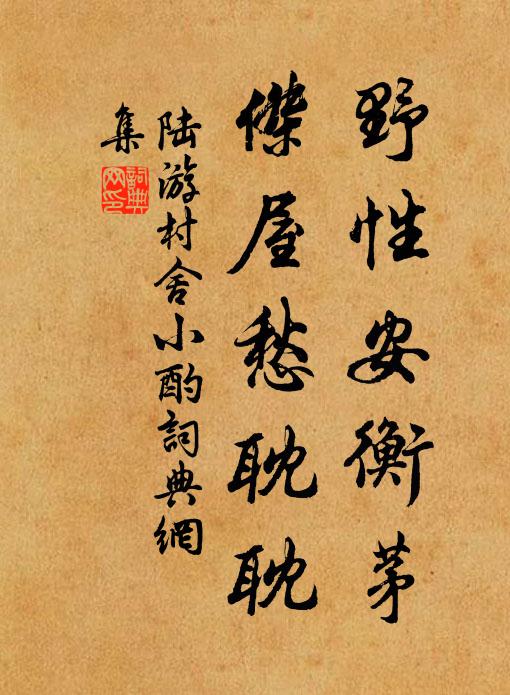 野性安衡茅
傑屋愁耽耽
陆游村舍小酌詞典網
集
詞典網印